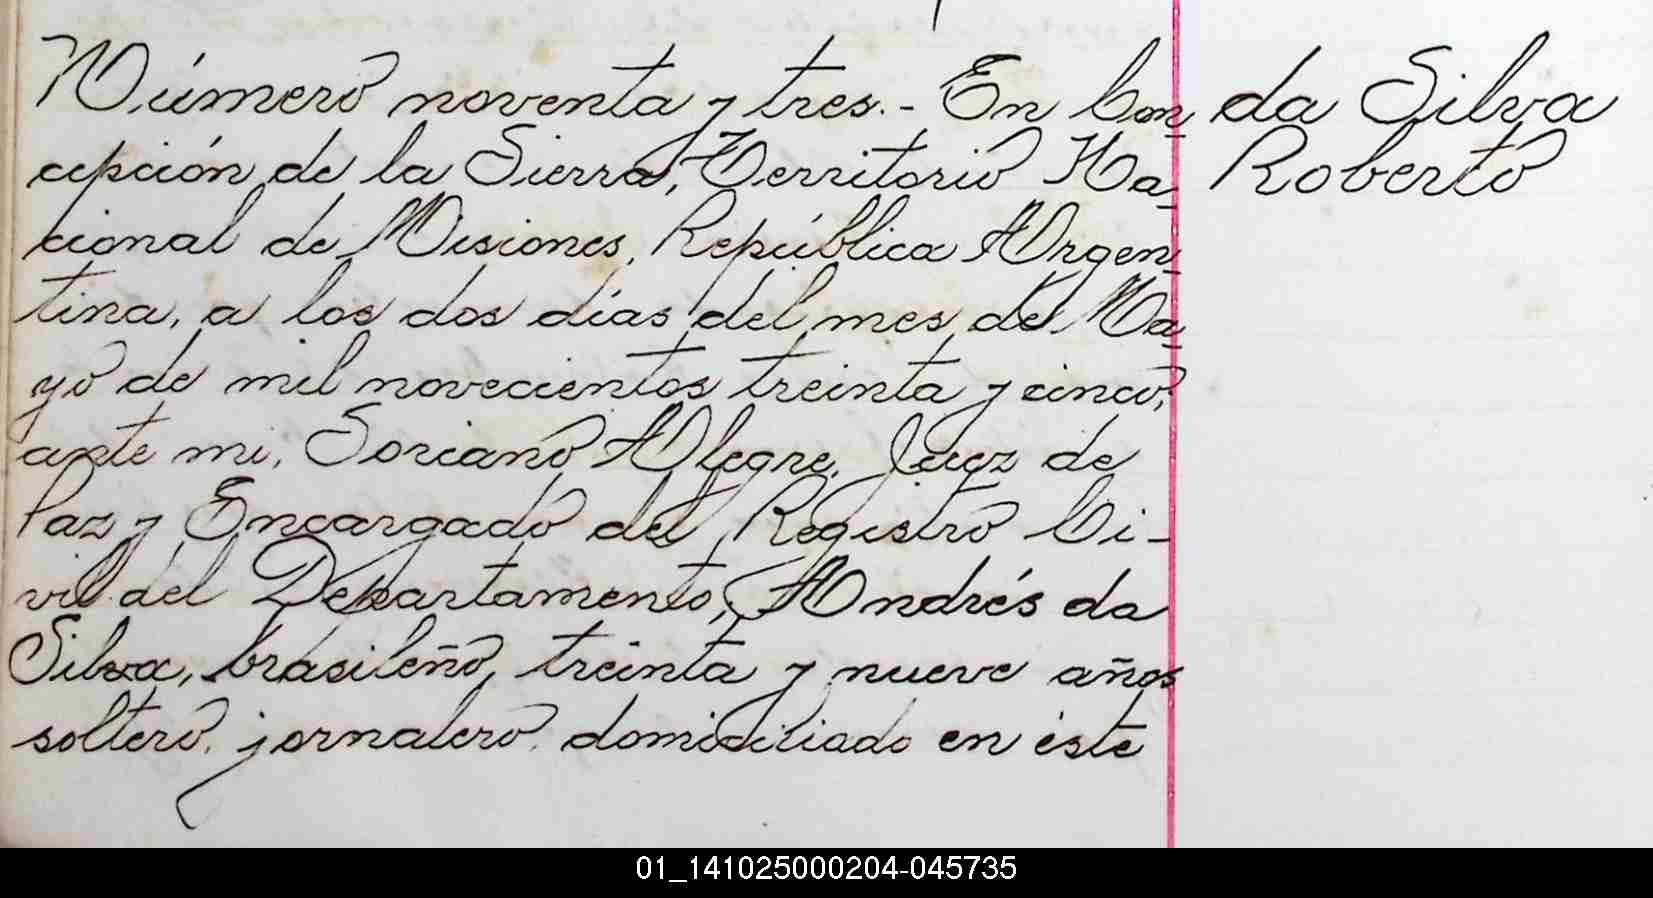 Número noventa y tres.- En Con-
cepción de la Sierra, Territorio Na-
cional de Misiones, República Argen-
tina, a los dos días del mes de Ma-
yo de mil novecientos treinta y cinco,
ante mi, Soriano Alegre, Juez de
Paz y Encargado del Registro Ci-
vil del Departamento, Andrés da
Silva, brasileño, treinta y nueve años
soltero, jornalero, domiciliado en éste
da Silva
Roberto
01_141025000204-045735